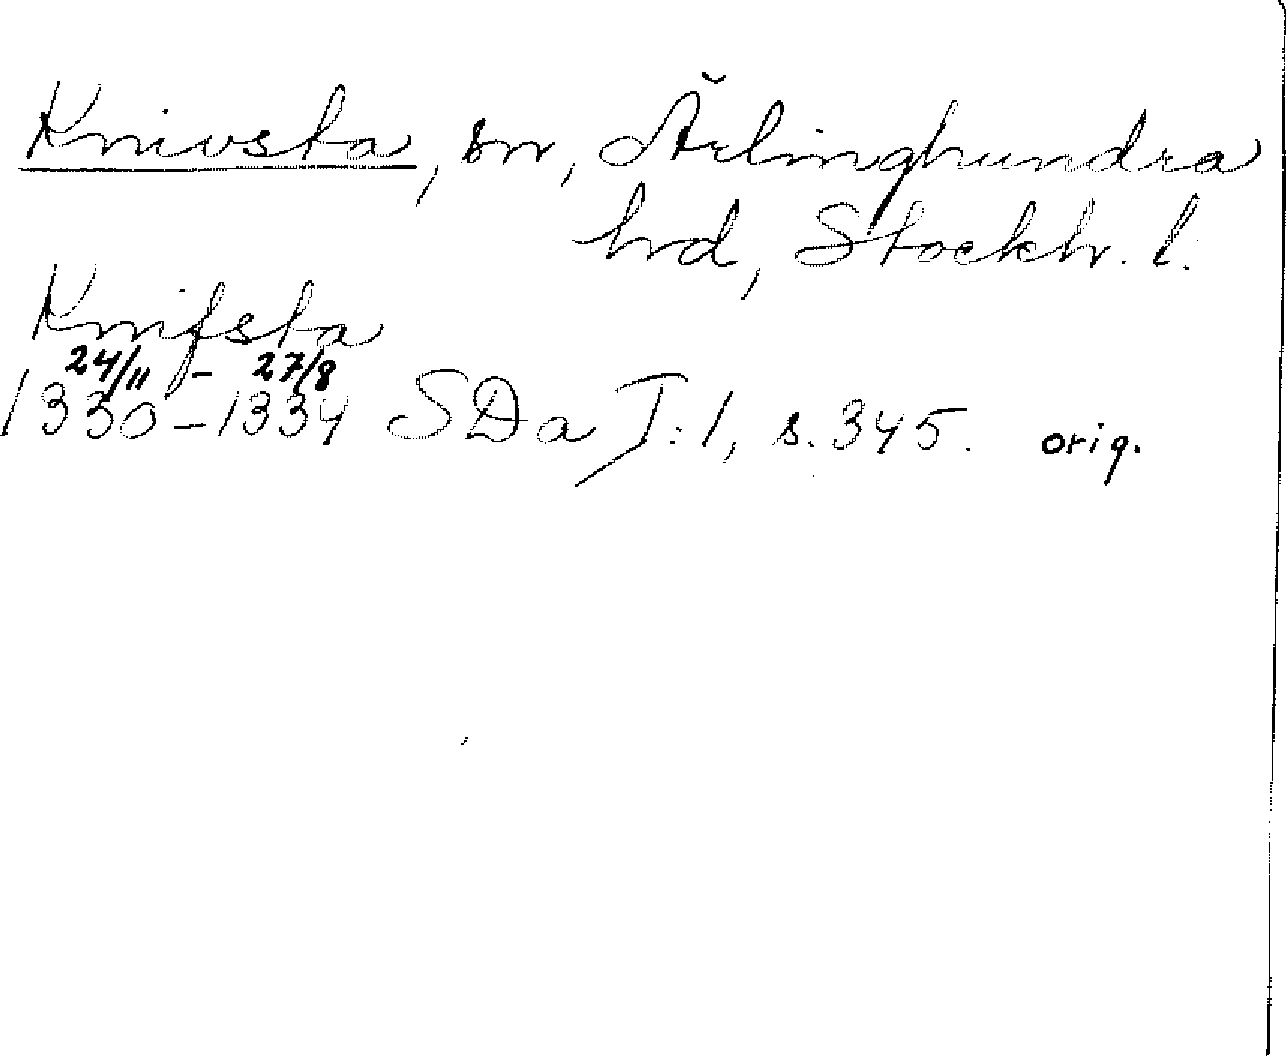 Knivsta, sn, Ärlinghundra
hrd, Stockh. l.
Knifsta
24/11 - 27/8
1330-1334 SDa I:1, s. 345. orig.